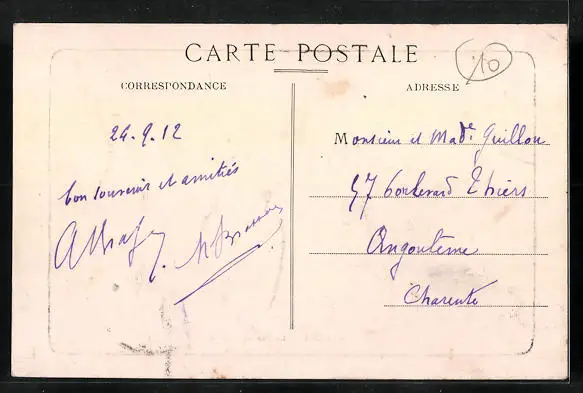 CARTE POSTALE
10
CORRESPONDANCE
ADRESSE
26.9.12
bon souvenir et amitiés
Monsieur et Made Guillon
57 boulevard Thiers
Angoulême
Charente